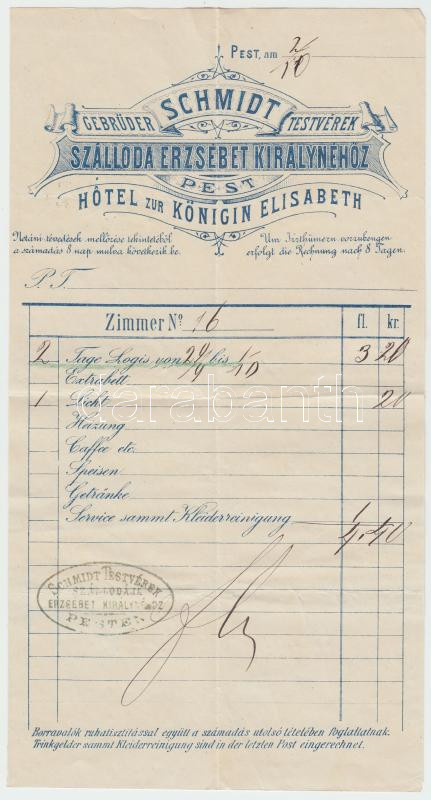 PEST, am 2/10
GEBRÜDER SCHMIDT TESTVÉREK
SZÁLLODA ERZSÉBET KIRÁLYNÉHOZ
PEST
HÔTEL ZUR KÖNIGIN ELISABETH
Netáni tévedések mellőzése tekintetéből Um Irrthümern vorzubeugen
a számadás 8 nap mulva következik be. erfolgt die Rechnung nach 8 Tagen.
P. T.
Zimmer No 16 fl. kr.
2 Tage Logis von 29/9 bis 1/10 3 20
Extrabett
1 Licht 20
Heizung
Caffee etc.
Speisen
Getränke
Service sammt Kleiderreinigung 1
4.40
SCHMIDT TESTVÉREK
SZÁLLODÁJA
ERZSÉBET KIRÁLYNÉHOZ
PESTEN
Borravalók ruhatisztitással együtt a számadás utolsó tételében foglaltatnak.
Trinkgelder sammt Kleiderreinigung sind in der letzten Post eingerechnet.
darabanth